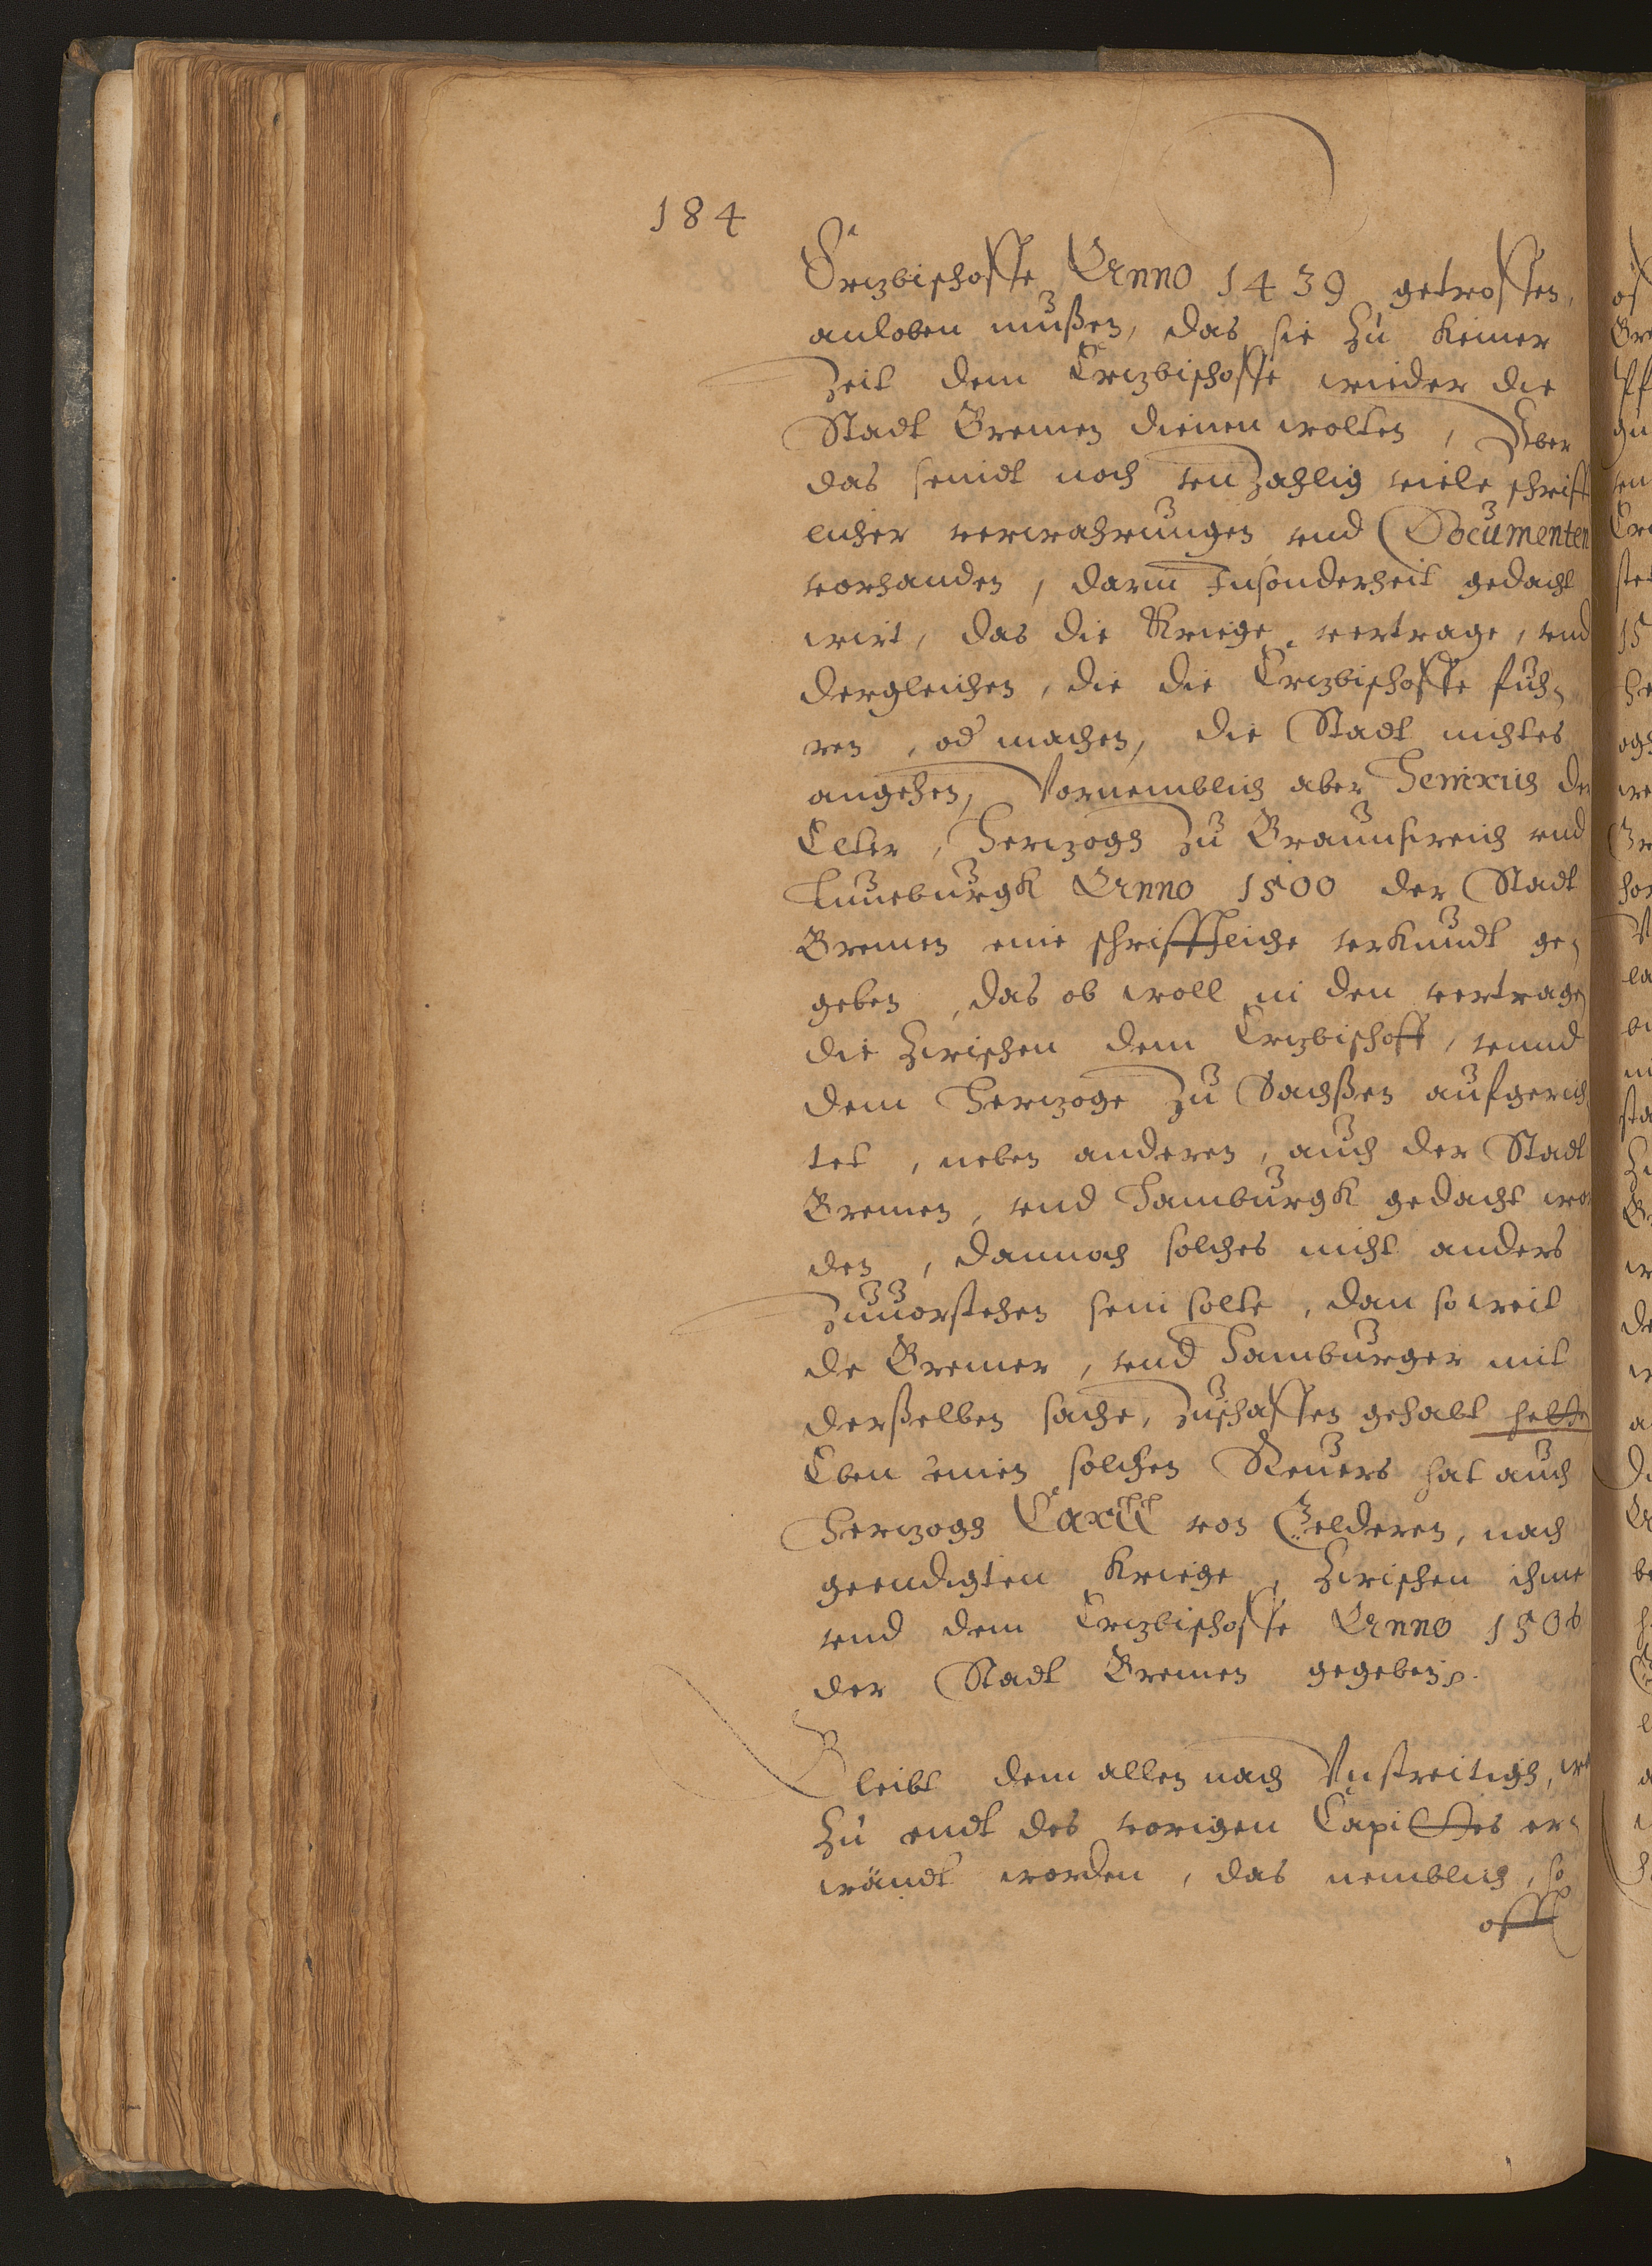 184
Ertzbischoffe Anno 1439 getroffen,
anloben mußen, das sie zu keiner
Zeit dem Ertzbischoffe wieder die
Stadt Bremen dienen wolten, Uber
das seindt noch vnzahlig viele schrifft
licher verwahrungen vnd Documenten
vorhanden, darin Insonderheit gedacht
wirt, das die Kriege, vertrage, vnd
dergleichen, die die Ertzbischoffe fuh-
ren, od machen, die Stadt nichtes
angehen, Vornemblich aber Henrich der
Elter, Hertzogh zu Braunsweich vnd
Luneburgk Anno 1500 der Stadt
Bremen eine schrifftliche vrkundt ge-
geben, das ob woll in den vertragen
die zwischen dem Ertzbischoff, vnnd
dem Hertzoge zu Sachßen aufgerich
tet, neben anderen, auch der Stadt
Bremen, vnd Hamburgk gedacht wor
den, dannoch solches nicht anders
zuuorstehen sein solte, dan so weit
de Bremer, vnd Hamburger mit
derßelben sache, zuschaffen gehabt hette
Eben einen solchen Reuers hat auch
Hertzogh Carll von Gelderen, nach
geendigten Kriege, zwischen ihme
vnd dem Ertzbischoffe Anno 1506
der Stadt Bremen gegeben.
Bleibt dem allen nach Vnstreitigh, wie
zu endt des vorigen Capittes er-
wändt worden, das nemblich, so
offt